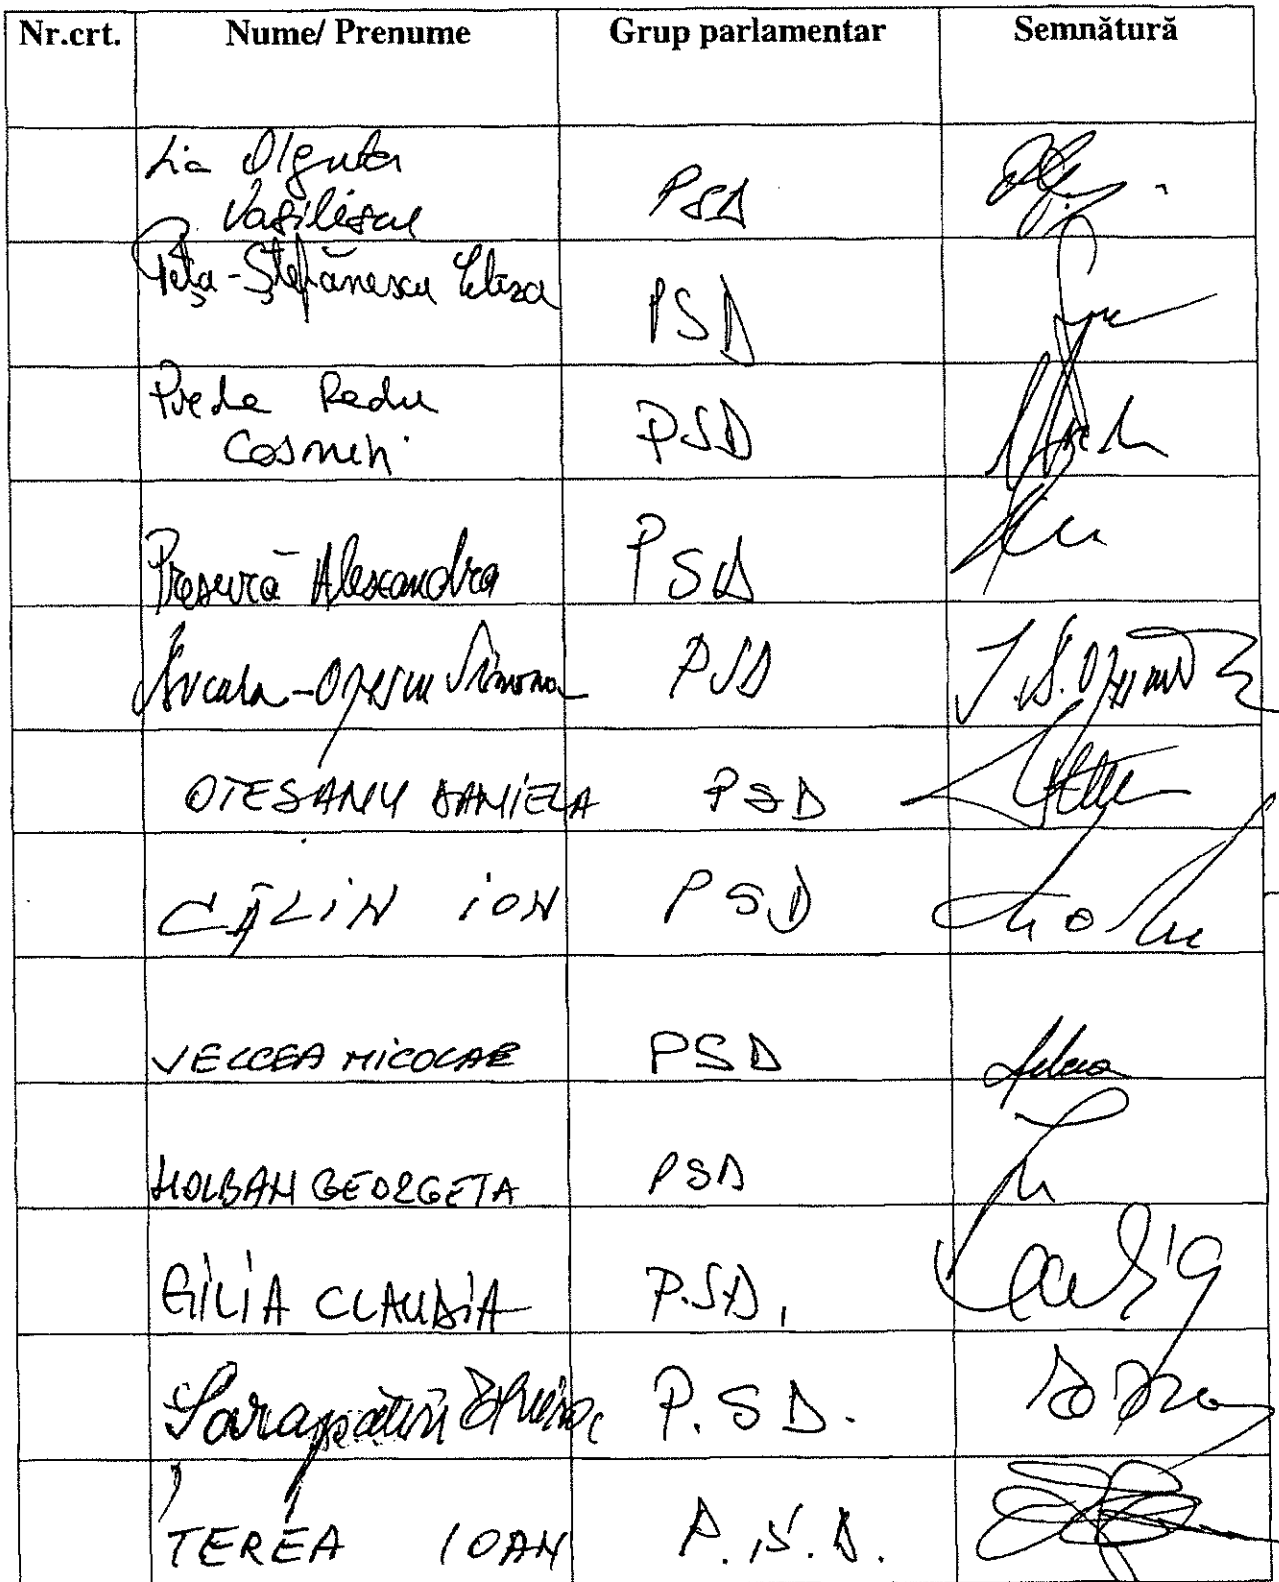 Nr.crt. Nume/ Prenume Grup parlamentar Semnătură
Lia Olguta
Vasilescu PSD
Peța-Ștefănescu Eliza PSD
Preda Radu
Cosmin PSD
Presură Alexandra PSD
Bucura-Oprescu Simona PSD
OTESANU DANIELA PSD
CĂLIN ION PSD
VELCEA NICOLAE PSD
HOLBAN GEORGETA PSD
GILIA CLAUDIA P.S.D.
P.S.D.
TEREA IOAN P.S.D.